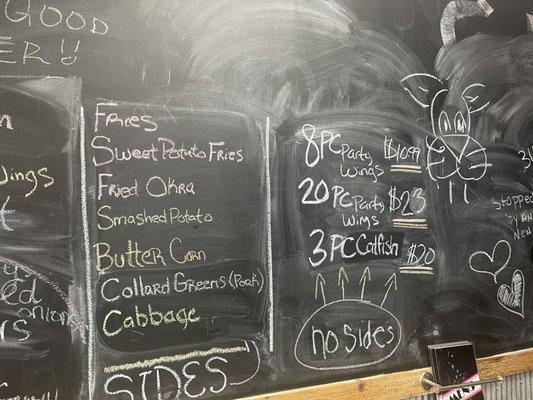 GOOD
Wings
onions
Fries
Sweet Potato Fries
Fried Okra
Smashed Potato
Butter Corn
Collard Greens (Pork)
Cabbage
SIDES
8 PC Party Wings $10.99
20 PC Party Wings $23
3 PC Catfish $20
no Sides
Stopped